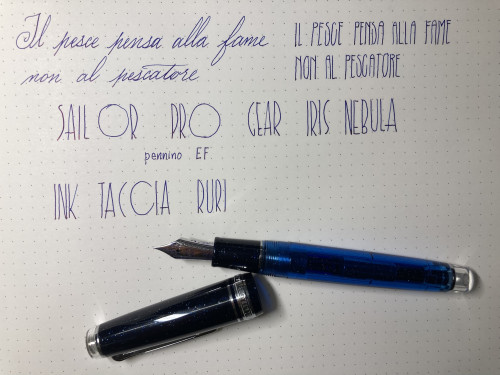 Il pesce pensa alla fame
non al pescatore
IL PESCE PENSA ALLA FAME
NON AL PESCATORE
SAILOR PRO GEAR IRIS NEBULA
pennino EF
INK TACCIA RURI